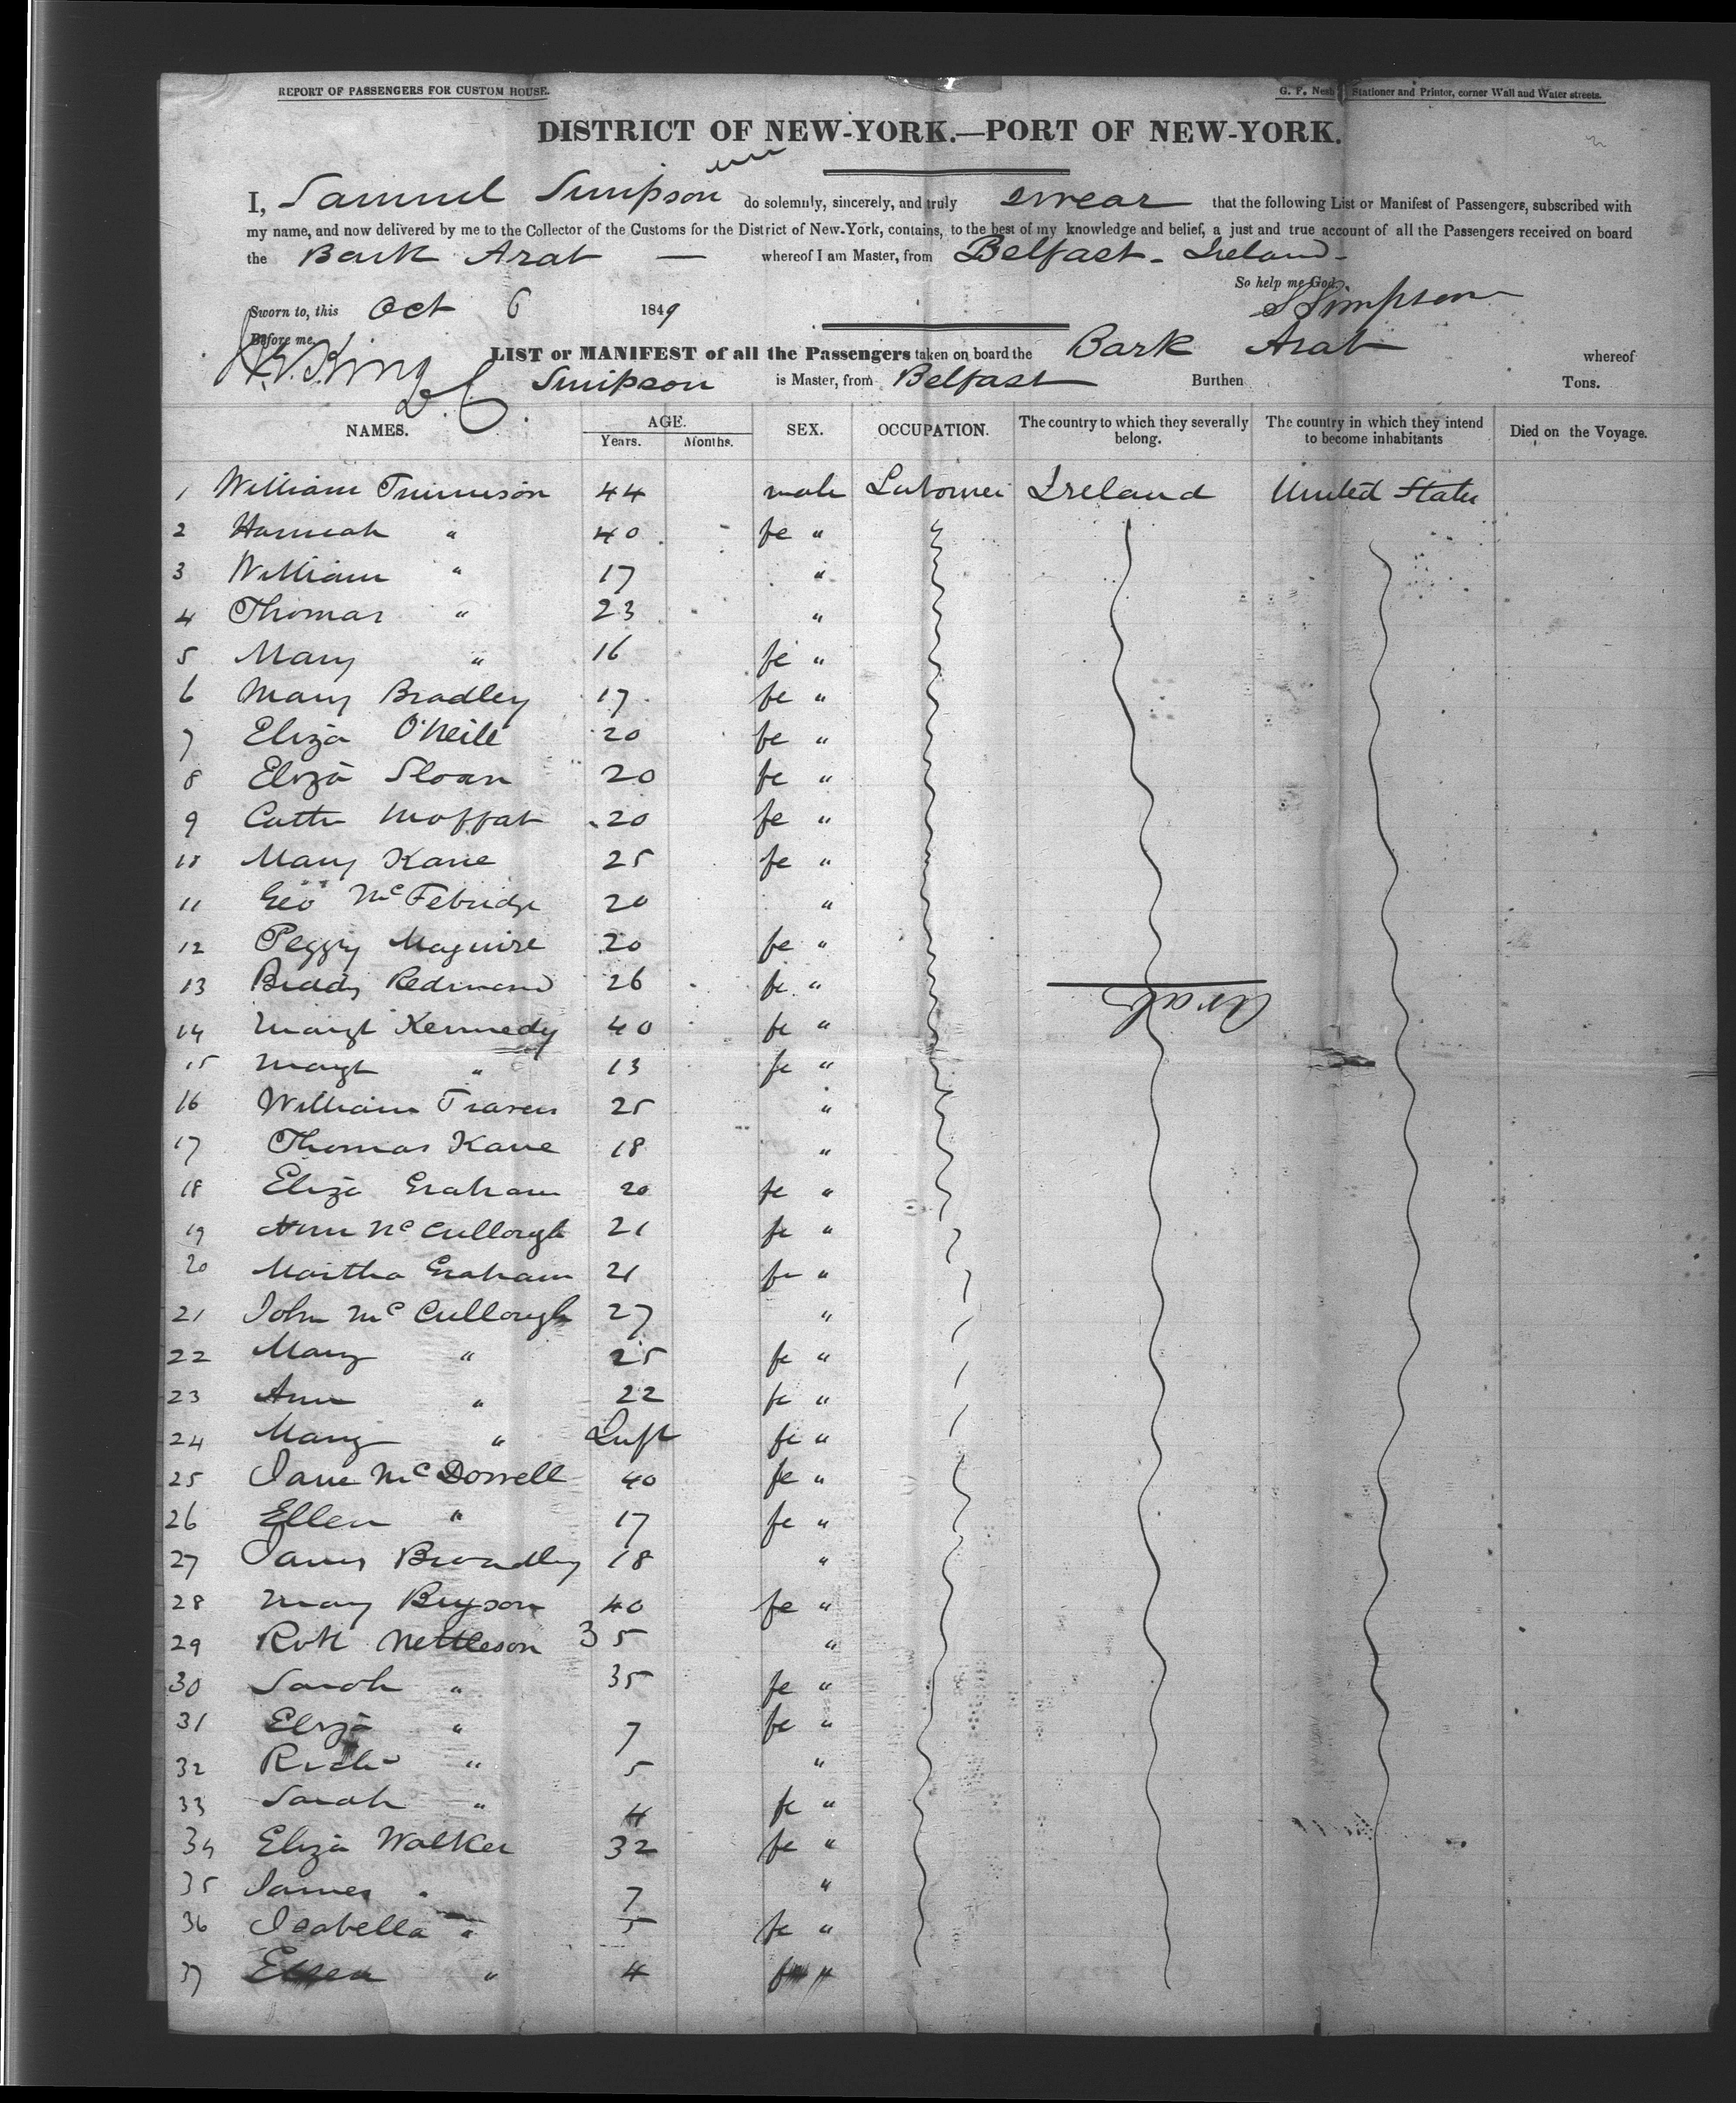 REPORT OF PASSENGERS FOR CUSTOM HOUSE. G. F. Nesb Stationer and Printer, corner Wall and Water streets.
DISTRICT OF NEW-YORK.—PORT OF NEW-YORK.
I, Samuel Simpson do solemnly, sincerely, and truly swear that the following List or Manifest of Passengers, subscribed with
my name, and now delivered by me to the Collector of the Customs for the District of New-York, contains, to the best of my knowledge and belief, a just and true account of all the Passengers received on board
the Bark Arab — whereof I am Master, from Belfast - Ireland -
So help me God.
Sworn to, this Oct 6 1849 S Simpson
Before me,
King LIST or MANIFEST of all the Passengers taken on board the Bark Arab whereof
Simpson is Master, from Belfast Burthen Tons.
NAMES. AGE. Years. Months. SEX. OCCUPATION. The country to which they severally belong. The country in which they intend to become inhabitants Died on the Voyage.
1 William 44 male Labourer Ireland United States
2 Hannah " 40 fe "
3 William " 17 "
4 Thomas " 23 "
5 Mary " 16 fe "
6 Mary Bradley 17 fe "
7 Eliza O'Neill 20 fe "
8 Eliza Sloan 20 fe "
9 Cathe Moffat 20 fe "
10 Mary Kane 25 fe "
11 Geo McFebridge 20 "
12 Peggy Maguire 20 fe "
13 Biddy Redmond 26 fe "
Arab
14 Margt Kennedy 40 fe "
15 Margt " 13 fe "
16 William Travers 25 "
17 Thomas Kane 18 "
18 Eliza Graham 20 fe "
19 Ann McCullough 21 fe "
20 Martha Graham 21 fe "
21 John McCullough 27 "
22 Mary " 25 fe "
23 Ann " 22 fe "
24 Mary " Inft fe "
25 Jane McDowell 40 fe "
26 Ellen " 17 fe "
27 James Broadley 18 "
28 Mary Bryson 40 fe "
29 Robt Nettleson 35 "
30 Sarah " 35 fe "
31 Eliza " 7 fe "
32 Richd " 5 "
33 Sarah " 4 fe "
34 Eliza Walker 32 fe "
35 James " 7 "
36 Isabella " 5 fe "
37 Ellen " 4 fe "